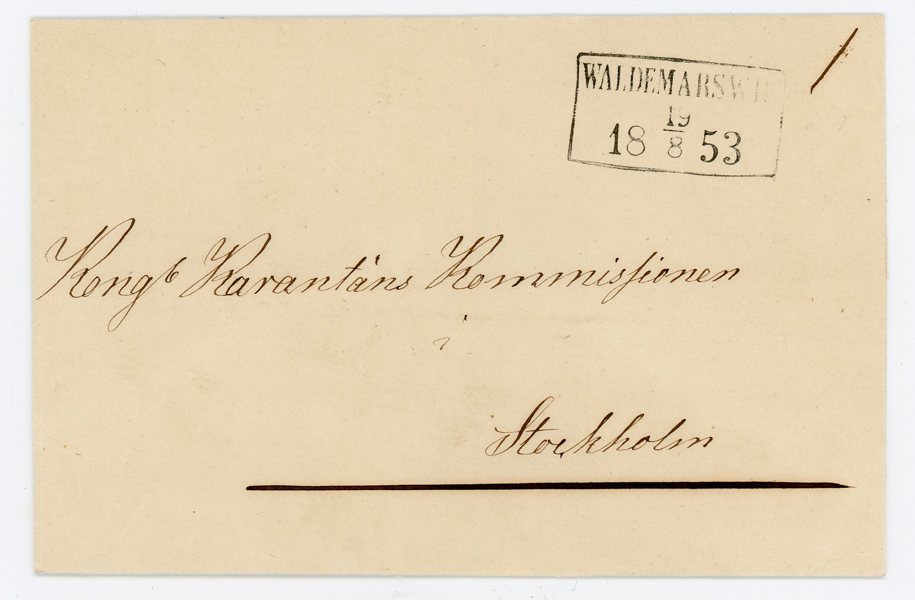 WALDEMARSWIK
19
18 8 53
Kongl Karantäns Kommissionen
i
Stockholm